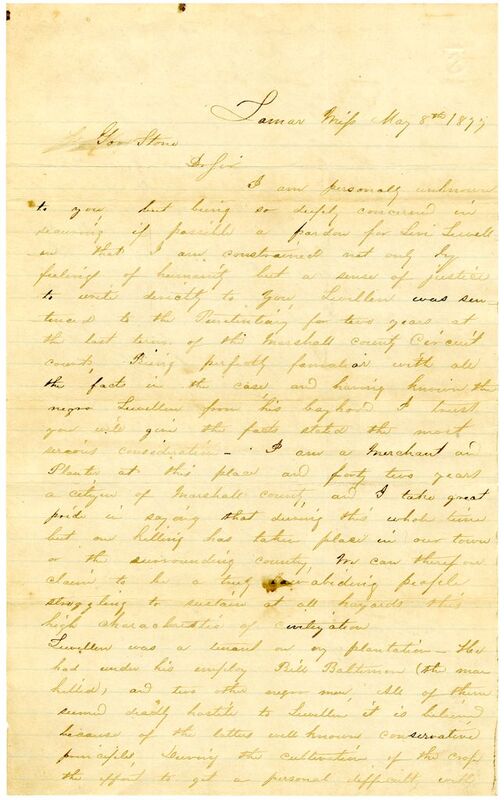 Lamar Miss May 8th 1877
Gov Stone
Dr Sir
I am personally unknown
to you, but being so deeply concerned in
securing if possible a pardon for Levi Lewell
en that I am constrained not only by
feeling of humanity but a sense of justice
to write directly to you, Lewellen was sen
tenced to the Penitentiary for two years at
the last term of the Marshall County Circuit
Court, Being perfectly familiar with all
the facts in the case and having known the
negro Lewellen from his boyhood I trust
you will give the facts stated the most
serious consideration - I am a Merchant and
Planter at this place and forty two years
a citizen of Marshall County and I take great
pride in saying that during this whole time
but one killing has taken place in our town
or the surrounding county, We can therefore
claim to be a truly law abiding people
struggling to sustain at all hazards this
high characteristic of civilization
Lewellen was a tenant on my plantation - He
had under his employ Bill Baltimore (the man
killed) and two other negro men, All of them
seemed deadly hostile to Lewellen it is believed
because of the latters well known conservative
principles, During the cultivation of the crop
the effort to get a personal difficulty with